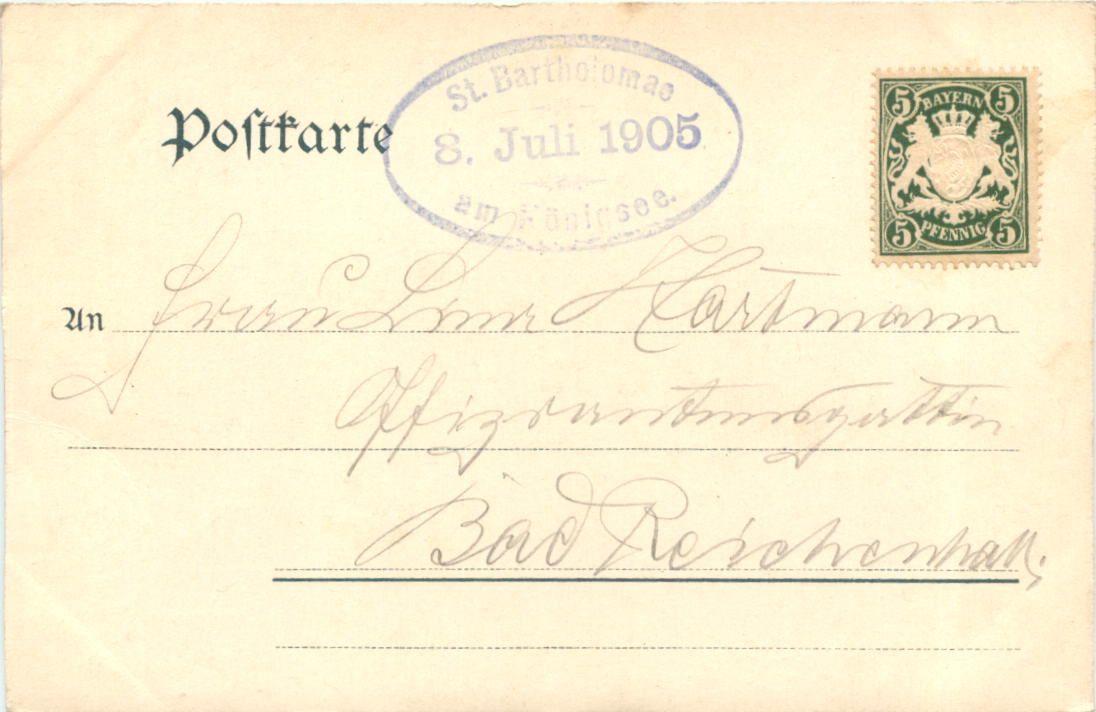 Postkarte
St. Bartholomae
8. Juli 1905
am Königsee.
5 BAYERN 5
5 PFENNIG 5
An Frau Lina Hartmann
Offiziantensgattin
Bad Reichenhall.